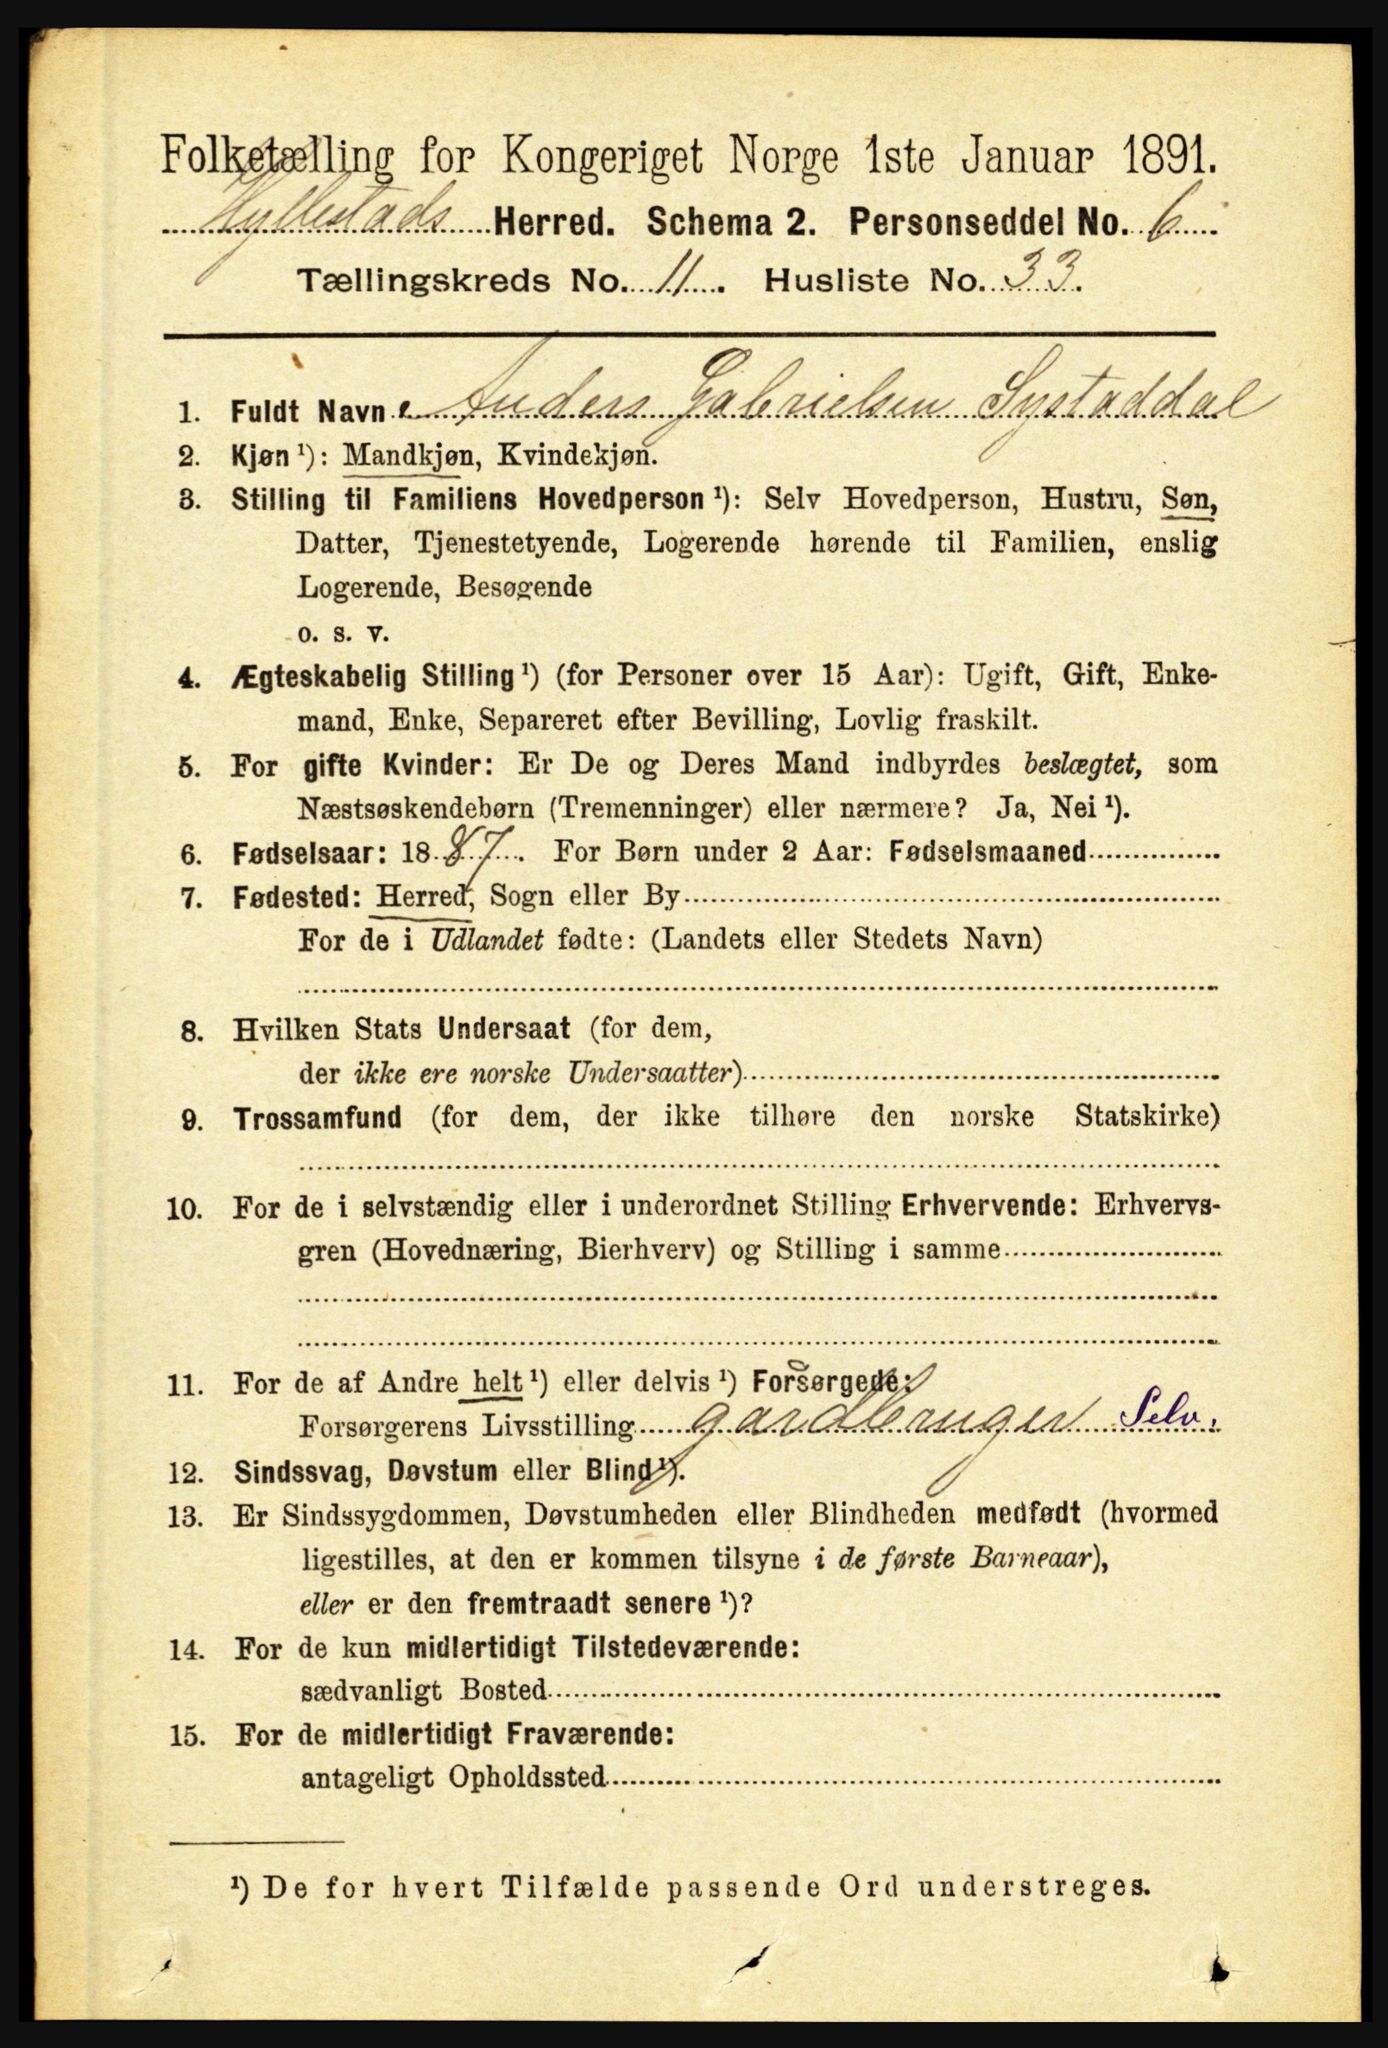 Folketælling for Kongeriget Norge 1ste Januar 1891.
Hyllestads Herred. Schema 2. Personseddel No. 6
Tællingskreds No. 11. Husliste No. 33.
1. Fuldt Navn: Anders Gabrielsen Systaddal
2. Kjøn ¹): Mandkjøn, Kvindekjøn.
3. Stilling til Familiens Hovedperson ¹): Selv Hovedperson, Hustru, Søn,
Datter, Tjenestetyende, Logerende hørende til Familien, enslig
Logerende, Besøgende
o. s. v.
4. Ægteskabelig Stilling ¹) (for Personer over 15 Aar): Ugift, Gift, Enke-
mand, Enke, Separeret efter Bevilling, Lovlig fraskilt.
5. For gifte Kvinder: Er De og Deres Mand indbyrdes beslægtet, som
Næstsøskendebørn (Tremenninger) eller nærmere? Ja, Nei ¹).
6. Fødselsaar: 1887. For Børn under 2 Aar: Fødselsmaaned
7. Fødested: Herred, Sogn eller By
For de i Udlandet fødte: (Landets eller Stedets Navn)
8. Hvilken Stats Undersaat (for dem,
der ikke ere norske Undersaatter)
9. Trossamfund (for dem, der ikke tilhøre den norske Statskirke)
10. For de i selvstændig eller i underordnet Stilling Erhvervende: Erhvervs-
gren (Hovednæring, Bierhverv) og Stilling i samme
11. For de af Andre helt ¹) eller delvis ¹) Forsørgede:
Forsørgerens Livsstilling gardbruger Selv.
12. Sindssvag, Døvstum eller Blind ¹).
13. Er Sindssygdommen, Døvstumheden eller Blindheden medfødt (hvormed
ligestilles, at den er kommen tilsyne i de første Barneaar),
eller er den fremtraadt senere ¹)?
14. For de kun midlertidigt Tilstedeværende:
sædvanligt Bosted
15. For de midlertidigt Fraværende:
antageligt Opholdssted
¹) De for hvert Tilfælde passende Ord understreges.